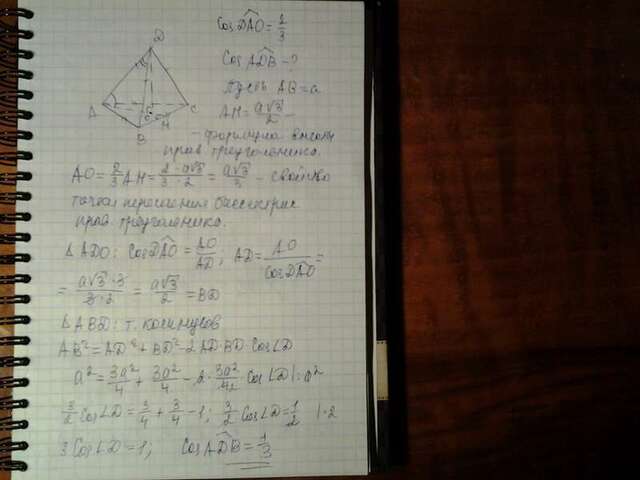 cos DÂO = 2/3
cos ADB - ?
Пусть AB = a
AH = a√3/2 -
- формула высоты
прав. треугольника.
D
A
C
B
O
H
AO = 2/3 AH = 2·a√3/3·2 = a√3/3 - свойство
точки пересечения биссектрис
прав. треугольника.
△ ADO: cos DAO = AO/AD; AD = AO/cos DAO =
= a√3·3/3·2 = a√3/2 = BD
△ ABD: т. косинусов
AB² = AD² + BD² - 2AD·BD·cos∠D
a² = 3a²/4 + 3a²/4 - 2·3a²/4 cos∠D |: a²
3/2 cos∠D = 3/4 + 3/4 - 1; 3/2 cos∠D = 1/2 |·2
3 cos∠D = 1; cos ADB = 1/3